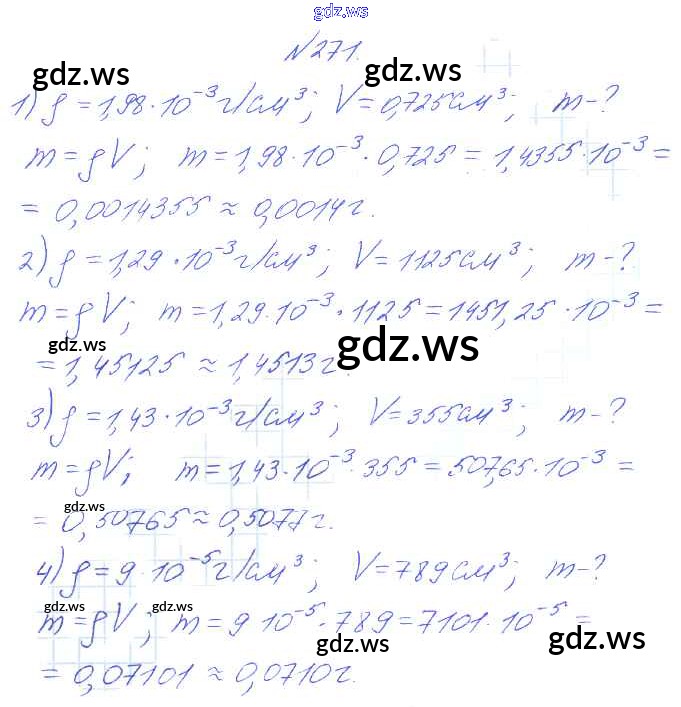 gdz.ws
№271.
gdz.ws gdz.ws
1) ρ = 1,98·10⁻³ г/см³; V = 0,725 см³; m - ?
m = ρV; m = 1,98·10⁻³·0,725 = 1,4355·10⁻³ =
= 0,0014355 ≈ 0,0014 г.
2) ρ = 1,29·10⁻³ г/см³; V = 1125 см³; m - ?
m = ρV; m = 1,29·10⁻³·1125 = 1451,25·10⁻³ =
gdz.ws gdz.ws
= 1,45125 ≈ 1,4513 г.
3) ρ = 1,43·10⁻³ г/см³; V = 355 см³; m - ?
m = ρV; m = 1,43·10⁻³·355 = 507,65·10⁻³ =
gdz.ws
= 0,50765 ≈ 0,5077 г.
4) ρ = 9·10⁻⁵ г/см³; V = 789 см³; m - ?
gdz.ws gdz.ws
m = ρV; m = 9·10⁻⁵·789 = 7101·10⁻⁵ =
gdz.ws
= 0,07101 ≈ 0,0710 г.